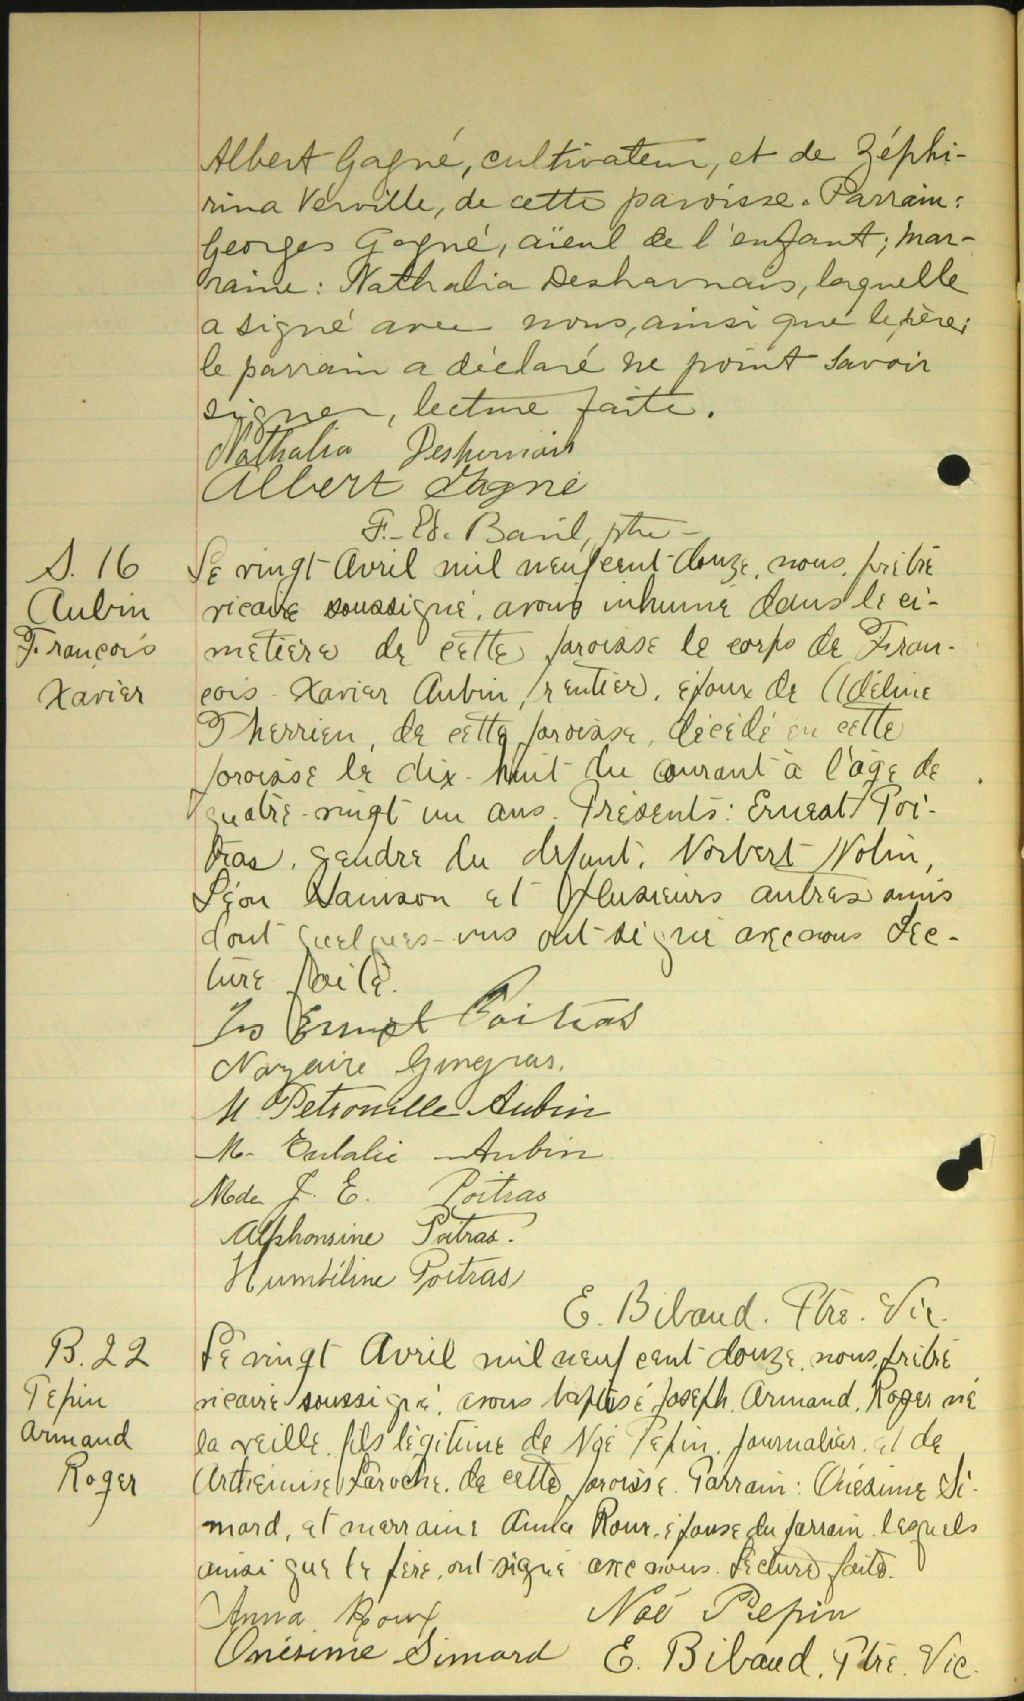 Albert Gagné, cultivateur, et de Zéphi-
rina Verville, de cette paroisse. Parrain:
Georges Gagné, aïeul de l'enfant; mar-
raine: Nathalia Desharnais, laquelle
a signé avec nous, ainsi que le père;
le parrain a déclaré ne point savoir
signer, lecture faite.
Nathalia Desharnais
Albert Gagné
F.-Ed. Baril, ptre
S. 16
Aubin
François
Xavier
Le vingt Avril mil neuf cent douze, nous, prêtre
vicaire soussigné, avons inhumé dans le ci-
metière de cette paroisse le corps de Fran-
çois-Xavier Aubin, rentier, époux de Adéline
Therrien, de cette paroisse, décédé en cette
paroisse le dix-huit du courant à l'âge de
quatre-vingt un ans. Présents: Ernest Poi-
tras, gendre du défunt, Norbert Nolin,
Léon Samson et plusieurs autres amis
dont quelques-uns ont signé avec nous Lec-
ture faite.
Jos Ernest Poitras
Nazaire Gingras.
M. Petronille Aubin
M. Eulalie Aubin
Mde J. E. Poitras
Alphonsine Poitras.
Humbéline Poitras
E. Bibaud. Ptre. Vic.
B. 22
Pepin
Armand
Roger
Le vingt Avril mil neuf cent douze, nous, prêtre
vicaire soussigné, avons baptisé Joseph, Armand, Roger né
la veille, fils légitime de Noé Pepin, journalier, et de
Arthémise Laroche, de cette paroisse. Parrain: Onésime Si-
mard, et marraine Anna Roux, épouse du parrain, lesquels
ainsi que le père, ont signé avec nous. Lecture faite.
Anna Roux Noé Pepin
Onésime Simard E. Bibaud. Ptre. Vic.